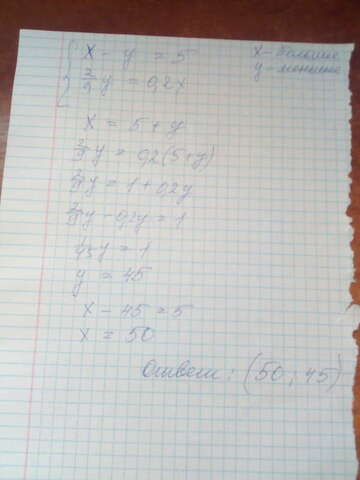 x - y = 5 x - большее
2/9 y = 0,2x y - меньшее
x = 5 + y
2/9 y = 0,2(5+y)
2/9 y = 1 + 0,2y
2/9 y - 0,2y = 1
1/45 y = 1
y = 45
x - 45 = 5
x = 50
Ответ: (50; 45)